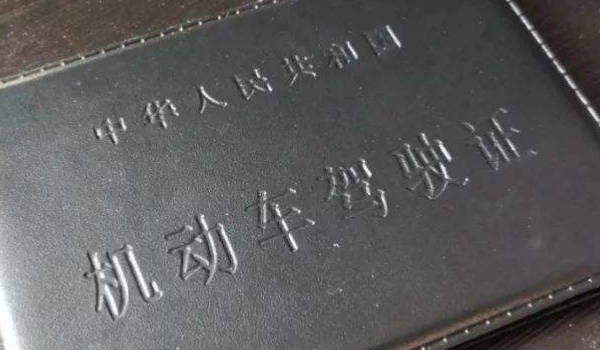 中华人民共和国
机动车驾驶证